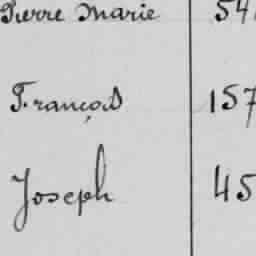 Pierre Marie 54
François 157
Joseph 45